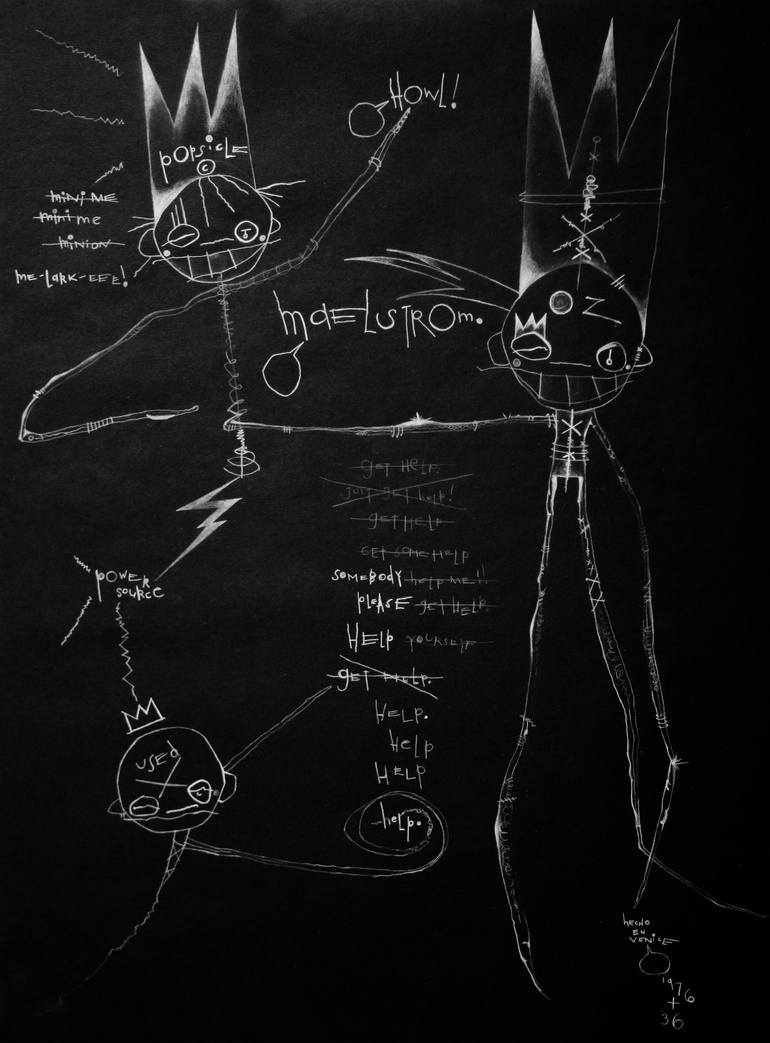 HOWL!
POPSiCLE
c
miNi ME
mini me
minion
me-LARK-EEE!
maELSTROm.
Z
get HeLP.
JUST get help!
get HELP
GET SOME HELP
SOMEBODY help ME!!
PLEASE get HELP
HELP YOURSELF
get HELP.
HELP.
HELP
HELP
help.
POWER
SOURCE
USED
hECHO
EN
VENiCE
1976
+
36